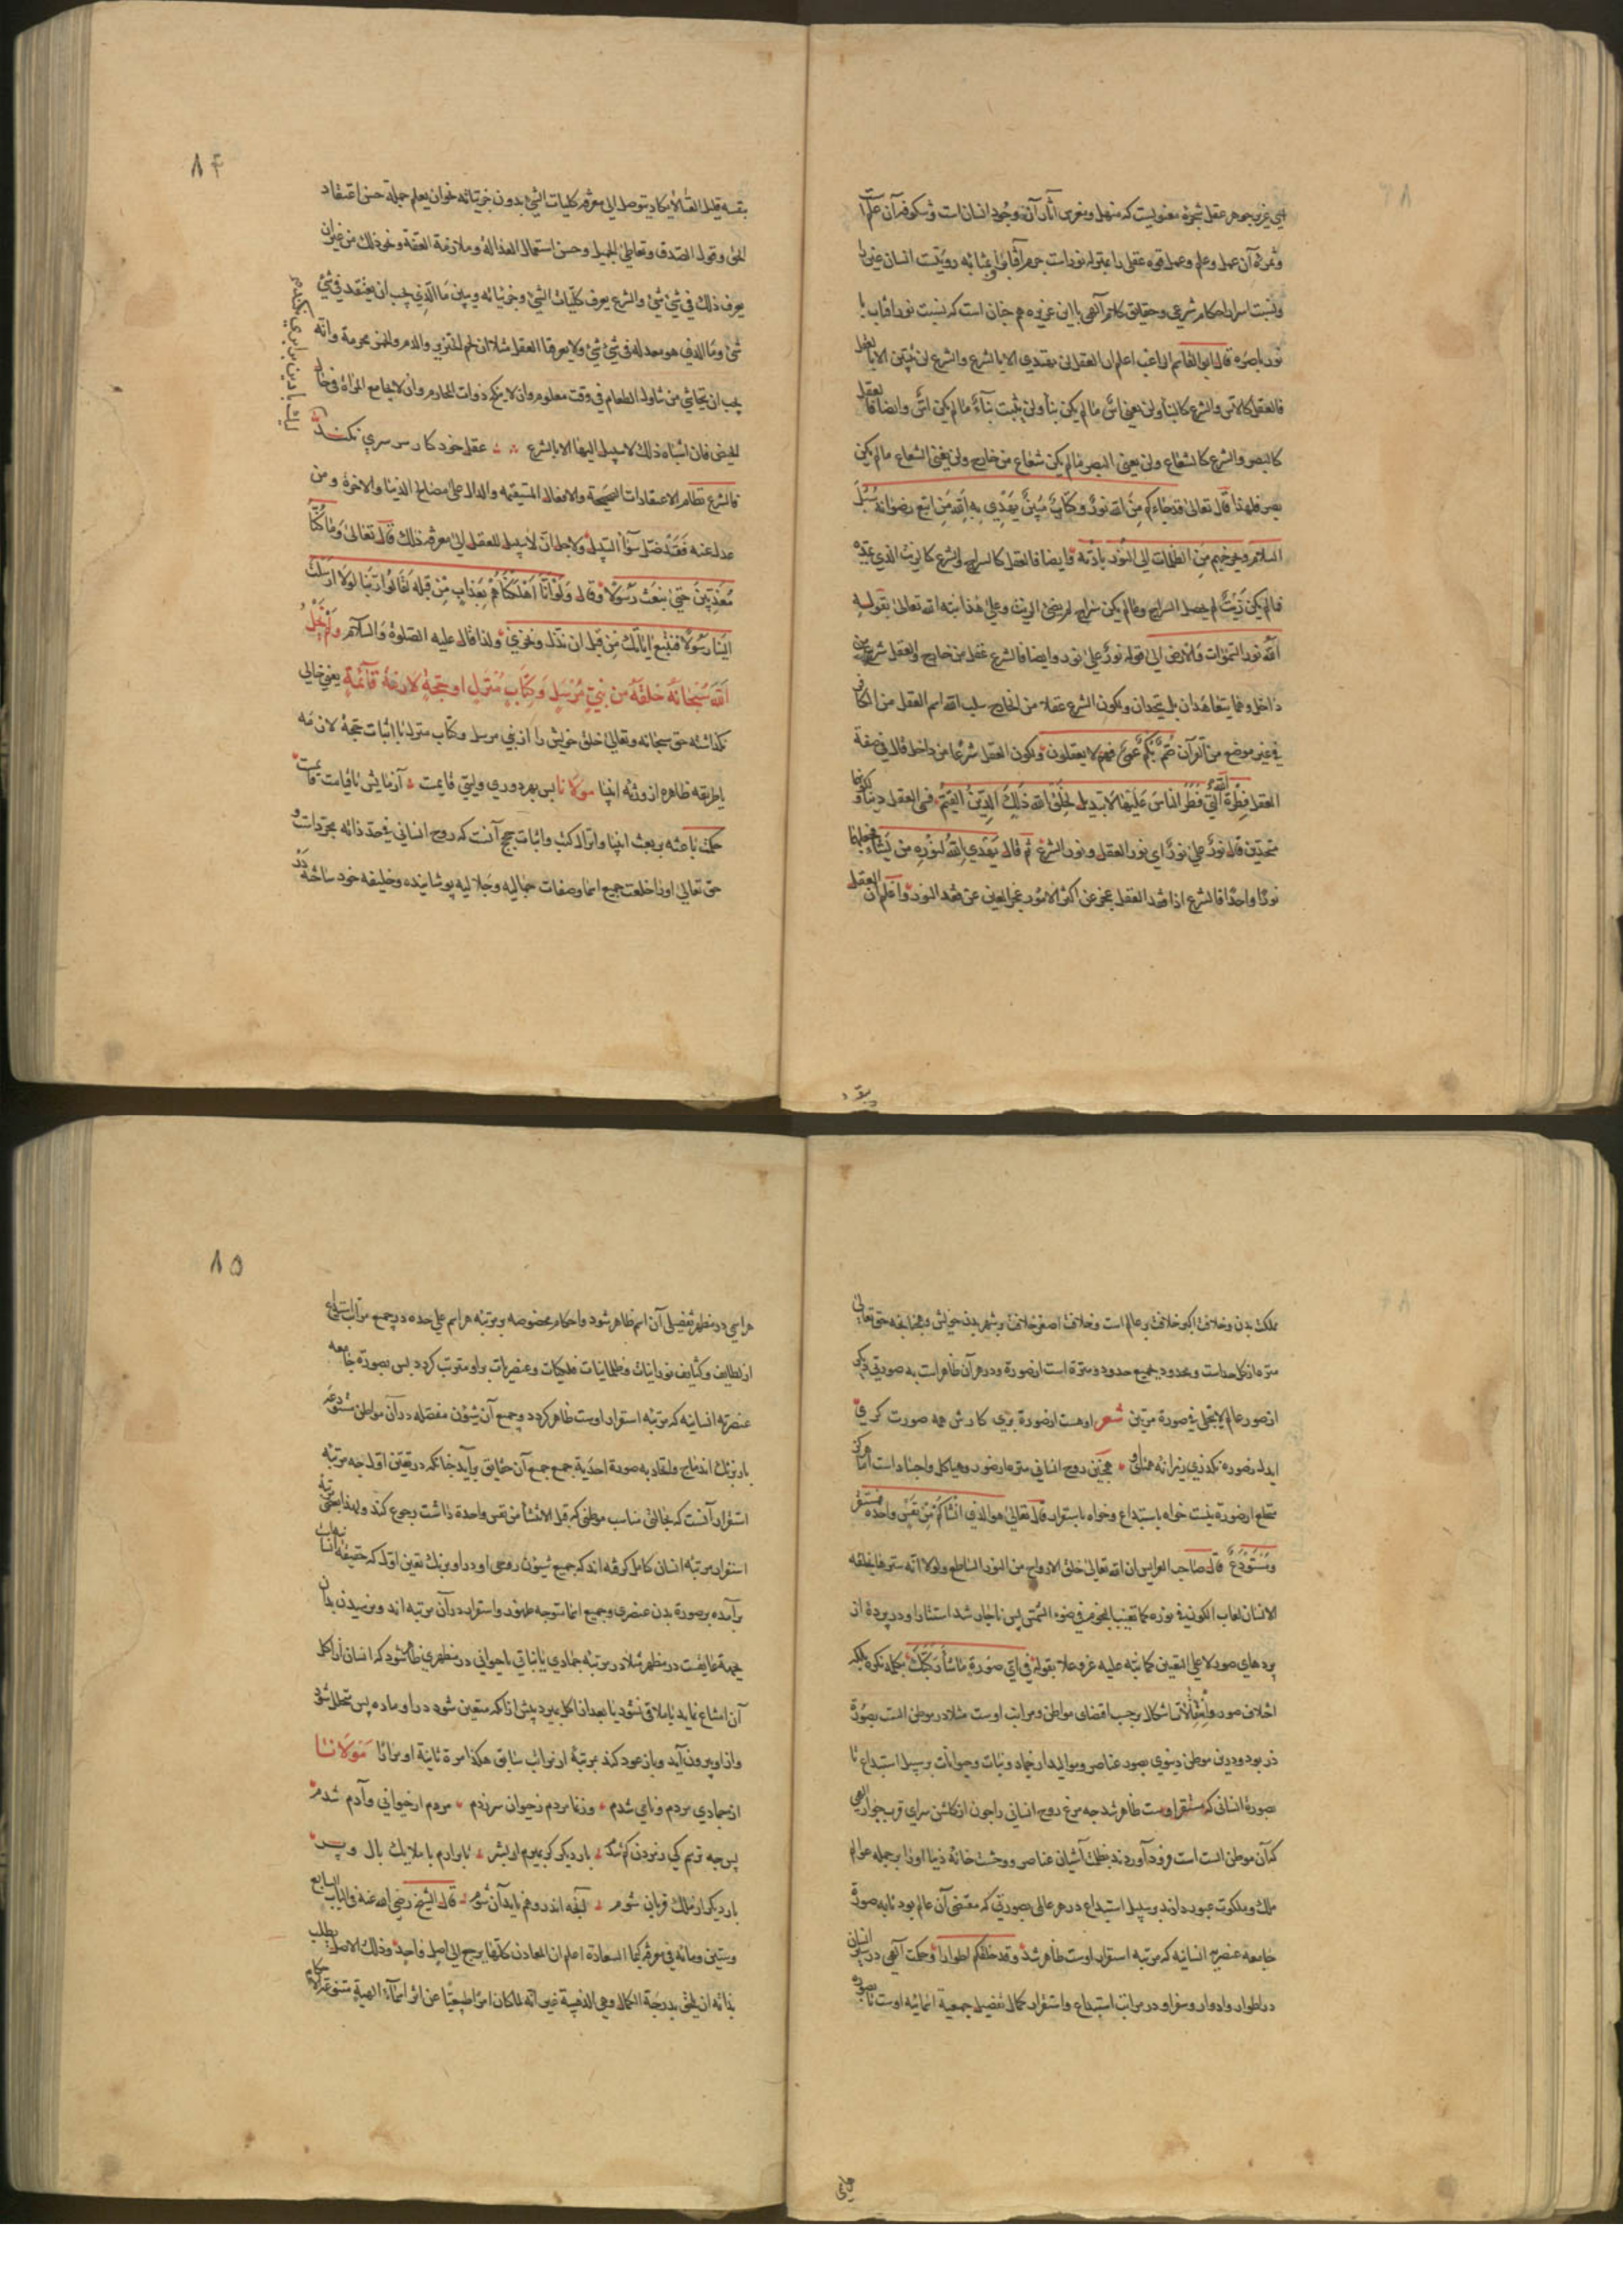 ای عزیز جوهر عقل شجرهٔ معنویست که منهل و مغرس آثار آن وجود انسان است و شکوفهٔ آن علم
و ثمرهٔ آن عمل و علم و عمل قوه عقلی را بمنزله نور است جرم آفتاب را و بمثابه رویتست انسان عین را
و نسبت اسرار احکام شرعی و حقایق کلام آلهی با این غریزه هم چنان است که نسبت نور آفتاب با
نور باصره قال ابو القاسم الراغب اعلم ان العقل لن یهتدی الا بالشرع والشرع لن یتبین الا بالعقل
فالعقل کالاس والشرع کالبناء ولن یغنی اس ما لم یکن بناء ولن یثبت بناء ما لم یکن اس وایضا فالعقل
کالبصر والشرع کالشعاع ولن یغنی البصر ما لم یکن شعاع من خارج ولن یغنی الشعاع ما لم یکن
بصر فلهذا قال تعالی قد جاءکم من الله نور وکتاب مبین یهدی به الله من اتبع رضوانه سبل
السلام ویخرجهم من الظلمات الی النور باذنه وایضا فالعقل کالسراج والشرع کالزیت الذی یمده
فما لم یکن زیت لم یحصل السراج وما لم یکن سراج لم یضئ الزیت وعلی هذا نبه الله تعالی بقوله
الله نور السموات والارض الی قوله نور علی نور وایضا فالشرع عقل من خارج والعقل شرع من
داخل وهما یتعاضدان بل یتحدان ولکون الشرع عقلا من الخارج سلب الله اسم العقل من الکافر
فی غیر موضع من القرآن صم بکم عمی فهم لا یعقلون ولکون العقل شرعا من داخل قال فی صفة
العقل فطرة الله التی فطر الناس علیها لا تبدیل لخلق الله ذلک الدین القیم فسمی العقل دینا ولکونهما
متحدین قال نور علی نور ای نور العقل ونور الشرع ثم قال یهدی الله لنوره من یشاء فجعلهما
نورا واحدا فالشرع اذا فقد العقل عجز عن اکثر الامور عجز العین عن فقد النور واعلم ان العقل
۸۴
بنفسه قلیل الغناء لا یکاد یتوصل الی معرفة کلیات الشئ بدون جزئیاته نحو ان یعلم جملة حسن اعتقاد
الحق وقول الصدق وتعاطی الجمیل وحسن استعمال العدالة وملازمة العفة ونحو ذلک من غیر ان
یعرف ذلک فی شئ شئ والشرع یعرف کلیات الشئ وجزئیاته ویبین ما الذی یجب ان یعتقد فی شئ
شئ وما الذی هو معدلة فی شئ شئ ولا یعرفنا العقل مثلا ان لحم الخنزیر والدم والخمر محرمة وانه
یجب ان یتحاشی من تناول الطعام فی وقت معلوم وان لا ینکح ذوات المحارم وان لا یجامع المراة فی حال
الحیض فان اشباه ذلک لا سبیل الیها الا بالشرع عقل خود کار سرسری نکند
فالشرع نظام الاعتقادات الصحیحة والافعال المستقیمه والدال علی مصالح الدنیا والاخرة ومن
عدل عنه فقد ضل سواء السبیل ولاجل ان لا سبیل للعقل الی معرفة ذلک قال تعالی وما کنا
معذبین حتی نبعث رسولا وقال ولو انا اهلکناهم بعذاب من قبله لقالوا ربنا لولا ارسلت
الینا رسولا فنتبع ایاتک من قبل ان نذل ونخزی ولذا قال علیه الصلوة والسلام ولم یخل
الله سبحانه خلقه من نبی مرسل وکتاب منزل او حجة لازمة قائمة یعنی خالی
نگذاشته حق سبحانه وتعالی خلق خویش را از نبی مرسل وکتاب منزل یا اثبات حجة لازمه
یا طریقه ظاهره از ورثه انبیا مولانا پس بهر دوری ولیی قایمست آزمایش تا قیامت دایمست
حکمت باعثه بر بعث انبیا وانزال کتب واثبات حجج آنست که روح انسانی فی حد ذاته مجرد است و
حق تعالی او را خلعت جمیع اسما وصفات جمالیه وجلالیه پوشانیده وخلیفه خود ساخته در
ملک بدن وخلافت اکبر خلافت بر عالم است وخلافت اصغر خلافت بر شهر بدن خویش وهمچنانچه حق تعالی
منزه از کل حد است ومحدود بجمیع حدود ومنزه است از صورة ودر هر آن ظاهر است به صورتی دیگر
از صور عالم لا یتجلی فی صورة مرتین شعر او هست از صورة بری کارش همه صورت گری
ای دل ز صورة نگذری زیرا نه همتای او همچنین روح انسانی منزه از صور وهیاکل واجساد است اما هرگز
منخلع از صورة نیست خواه باستیداع وخواه باستقرار قال تعالی هو الذی انشاکم من نفس واحدة فمستقر
ومستودع قال صاحب العرایس ان الله تعالی خلق الارواح من النور الساطع ولولا انه سترها بخلقه
الانسان لغاب الکون فی نوره کما تغیب النجوم فی ضوء الشمس پس ناچار شد استتار او در پرده از
پردهای صور لا علی التعیین کما نبه علیه عز وعلا بقوله فی ای صورة ما شاء رکبک بکلمه نکره بلکه
اختلاف صور واشکال بر حسب اقتضای مواطن ومراتب اوست مثلا در موطن الست بصورة
ذر بود ودرین موطن دنیوی بصور عناصر وموالید از جماد ونبات وحیوانات بر سبیل استیداع تا
بصورة انسانی که مستقر اوست ظاهر شد چه مرغ روح انسانی را چون از گلشن سرای قرب جوار الهی
که آن موطن الست است فرود آوردند بظلمت آشیان عناصر ووحشت خانهٔ دنیا او را بر جمله عوالم
ملک وملکوت عبور دادند بر سبیل استیداع در هر عالمی بصورتی که مقتضی آن عالم بود تا به صورة
جامعه عنصریه انسانیه که مرتبه استقرار اوست ظاهر شد وقد خلقکم اطوارا وحکمت آلهی در سیر انسان
در اطوار وادوار وسفر او در مراتب استیداع واستقرار کمال تفصیل جمعیة اسمائیه اوست تا بصورة
۸۵
هر اسمی در مظهر تفصیلی آن اسم ظاهر شود واحکام مخصوصه بر مرتبه هر اسم علی حده در جمیع مراتب استیداع
از لطایف وکثایف نورانیات وظلمانیات فلکیات وعنصریات بر او مترتب گردد پس بصورة جامعه
عنصریه انسانیه که مرتبه استقرار اوست ظاهر گردد وجمیع آن شئون مفصله در آن مواطن مستودعه
بار برنک اندماج واتحاد به صورة احدیة جمع جمع آن حقایق برآید چنانکه در تعین اول چه مرتبه
استقرار آنست که بحالتی مناسب موطنی که قبل الانشاء من نفس واحدة داشت رجوع کند ولهذا بعضی مرتبهٔ
استقرار مرتبه انسان کامل گرفته اند که جمیع شئون روحی او در او برنک تعین اول که حقیقة انسانیه است
برآمده بر صورة بدن عنصری وجمیع اسما متوجه ظهور واستقرار در آن مرتبه اند وبر رسیدن بدان
واز او بیرون آید وباز عود کند بمرتبهٔ از مراتب سابق هکذا مرة ثانیة او مرارا مولانا
از جمادی مردم ونامی شدم وز نما مردم ز حیوان سرزدم مردم از حیوانی وآدم شدم
پس چه ترسم کی ز مردن کم شدم بار دیگر که بمیرم از بشر تا برآرم با ملایک بال وپر
بار دیگر از ملک قربان شوم آنچه اندر وهم ناید آن شوم قال الشیخ رضی الله عنه فی الباب السابع
وستین ومائه فی معرفة کیمیا السعادة اعلم ان المعادن کلها یرجع الی اصل واحد وذلک الاصل یطلب
بذاته ان یلحق بدرجة الکمال وهی الذهبیة غیر انه لما کان امرا طبیعیا عن اثر اسماء الهیة متنوعة الاحکام